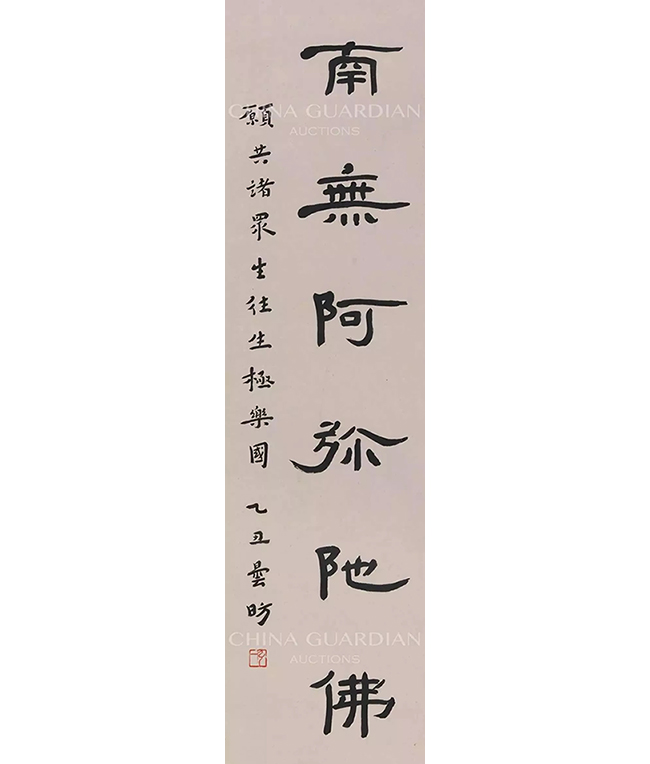 南無阿弥陀佛
願共諸眾生往生極樂國 乙丑曇昉
CHINA GUARDIAN
AUCTIONS
CHINA GUARDIAN
AUCTIONS